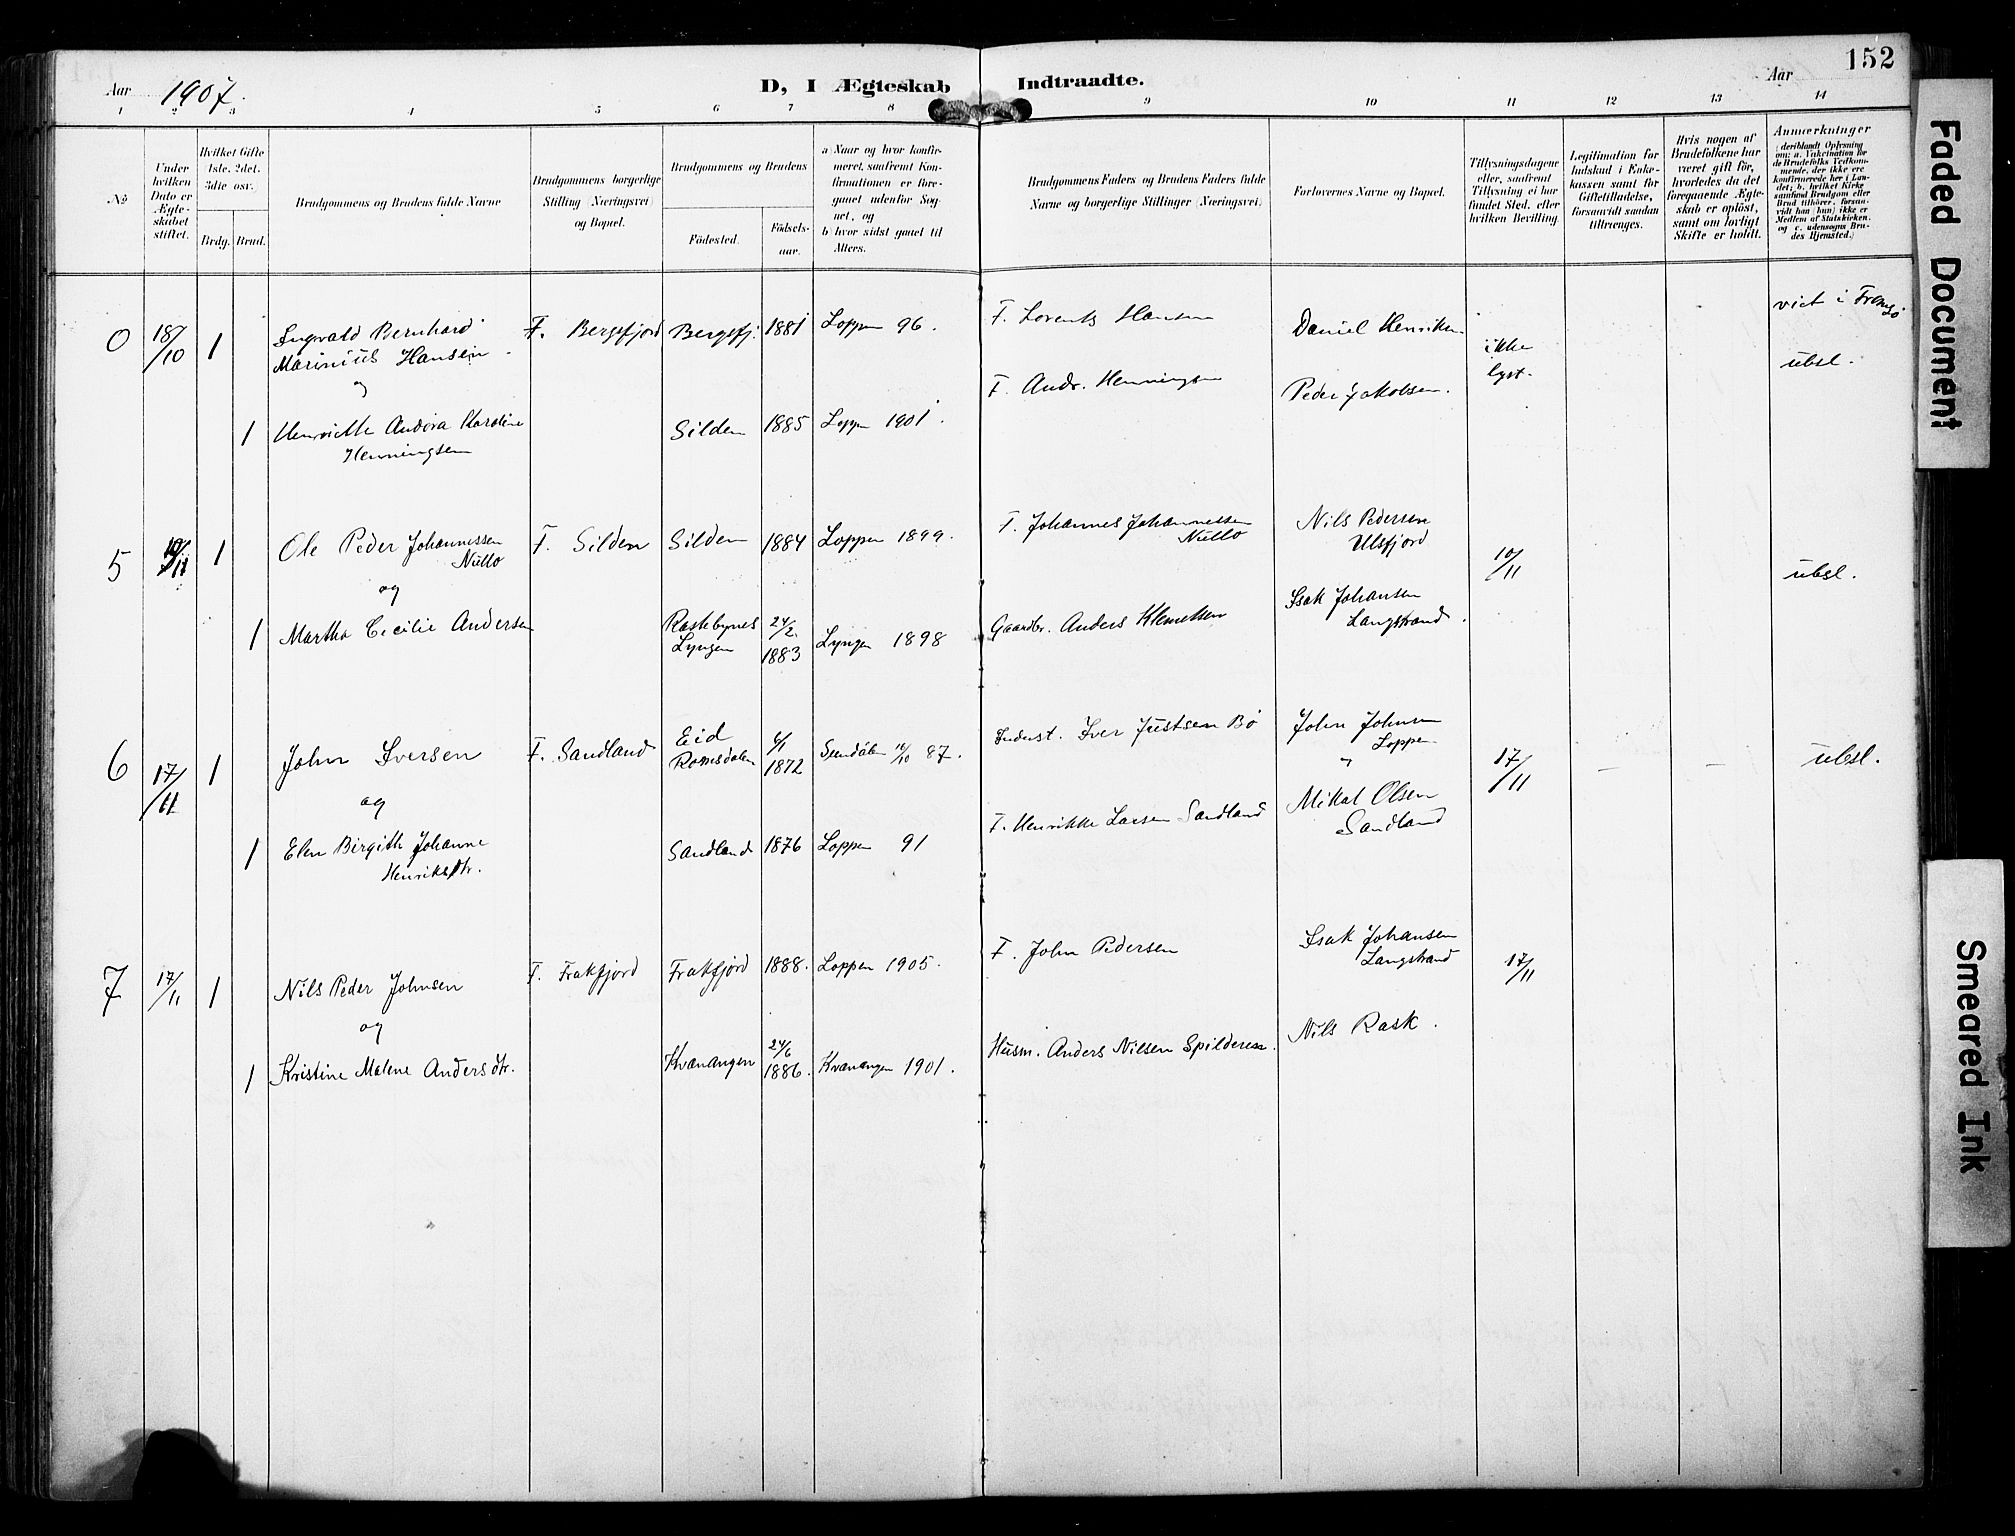 152
Aar 1907.
D, I Ægteskab Indtraadte.
Aar
1 2 3 4 5 6 7 8 9 10 11 12 13 14
No
Under hvilken Dato er Ægteskabet stiftet.
Hvilket Gifte (1ste, 2det, 3die osv.)
Brdg. Brud.
Brudgommens og Brudens fulde Navne
Brudgommens borgerlige Stilling (Næringsvei) og Bopæl.
Brudgommens og Brudens
Födested.
Födsels-aar.
a) Naar og hvor konfirmeret, saafremt Konfirmationen er foregaaet udenfor Sognet, og
b) hvor sidst gaaet til Alters.
Brudgommens Faders og Brudens Faders fulde Navne og borgerlige Stillinger (Næringsvei)
Forlovernes Navne og Bopæl.
Tillysningsdagene eller, saafremt Tillysning ei har fundet Sted, efter hvilken Bevilling.
Legitimation for Indskud i Enkekassen samt for Giftetilladelse, forsaavidt saadan tiltrænges.
Hvis nogen af Brudefolkene har været gift för, hvorledes da det foregaaende Ægteskab er oplöst, samt om lovligt Skifte er holdt.
Anmærkninger
(deriblandt Oplysning om: a. Vakcination for de Brudefolks Vedkommende, der ikke ere konfirmerede her i Landet; b. hvilket Kirkesamfund Brudgom eller Brud tilhører, forsaavidt han (hun) ikke er Medlem af Statskirken, og c. udensogns Brudes Hjemsted.)
0 18/10 1 Ingvald Bernhard F. Bergsfjord Bergsfj. 1881 Loppen 96. F. Lorents Hansen Daniel Henriksen ikke lyst. viet i Tromsö
Marinius Hansen ubsl.
og F. Andr. Henningsen Peder Jakobsen.
1 Henriette Andora Karoline Silden 1885 Loppen 1901.
Henningsen
5 10/11 1 Ole Peder Johannessen F. Silden Silden 1884 Loppen 1899. F. Johannes Johannessen Nils Pedersen 10/11 ubsl.
Nullo Nullo Ulsfjord
og
1 Martha Cecilie Andersen Lyngen 24/2 1883 Lyngen 1898 Gaardbr. Anders Klemetsen Isak Johansen
Langstrand.
6 17/11 1 John Iversen F. Sandland Eid Romsdalen 6/1 1872 87. Iver Justsen Bö John Johnsen 17/11 — — ubsl.
Loppen
og "
Mikal Olsen
1 Elen Birgith Johanne Sandland 1876 Loppen 91 F. Henrikke Larsen Sandland Sandland
Henriksdtr.
7 17/11 1 Nils Peder Johnsen F. Frakfjord Frakfjord 1888. Loppen 1905. F. John Pedersen Isak Johansen 17/11
Langstrand
og
1 Kristine Malene Andersdtr. Kvænangen 24/6 1886. Kvænangen 1901. Husm. Anders Nilsen Spilderen. Nils Rask.
Faded Document
Smeared Ink